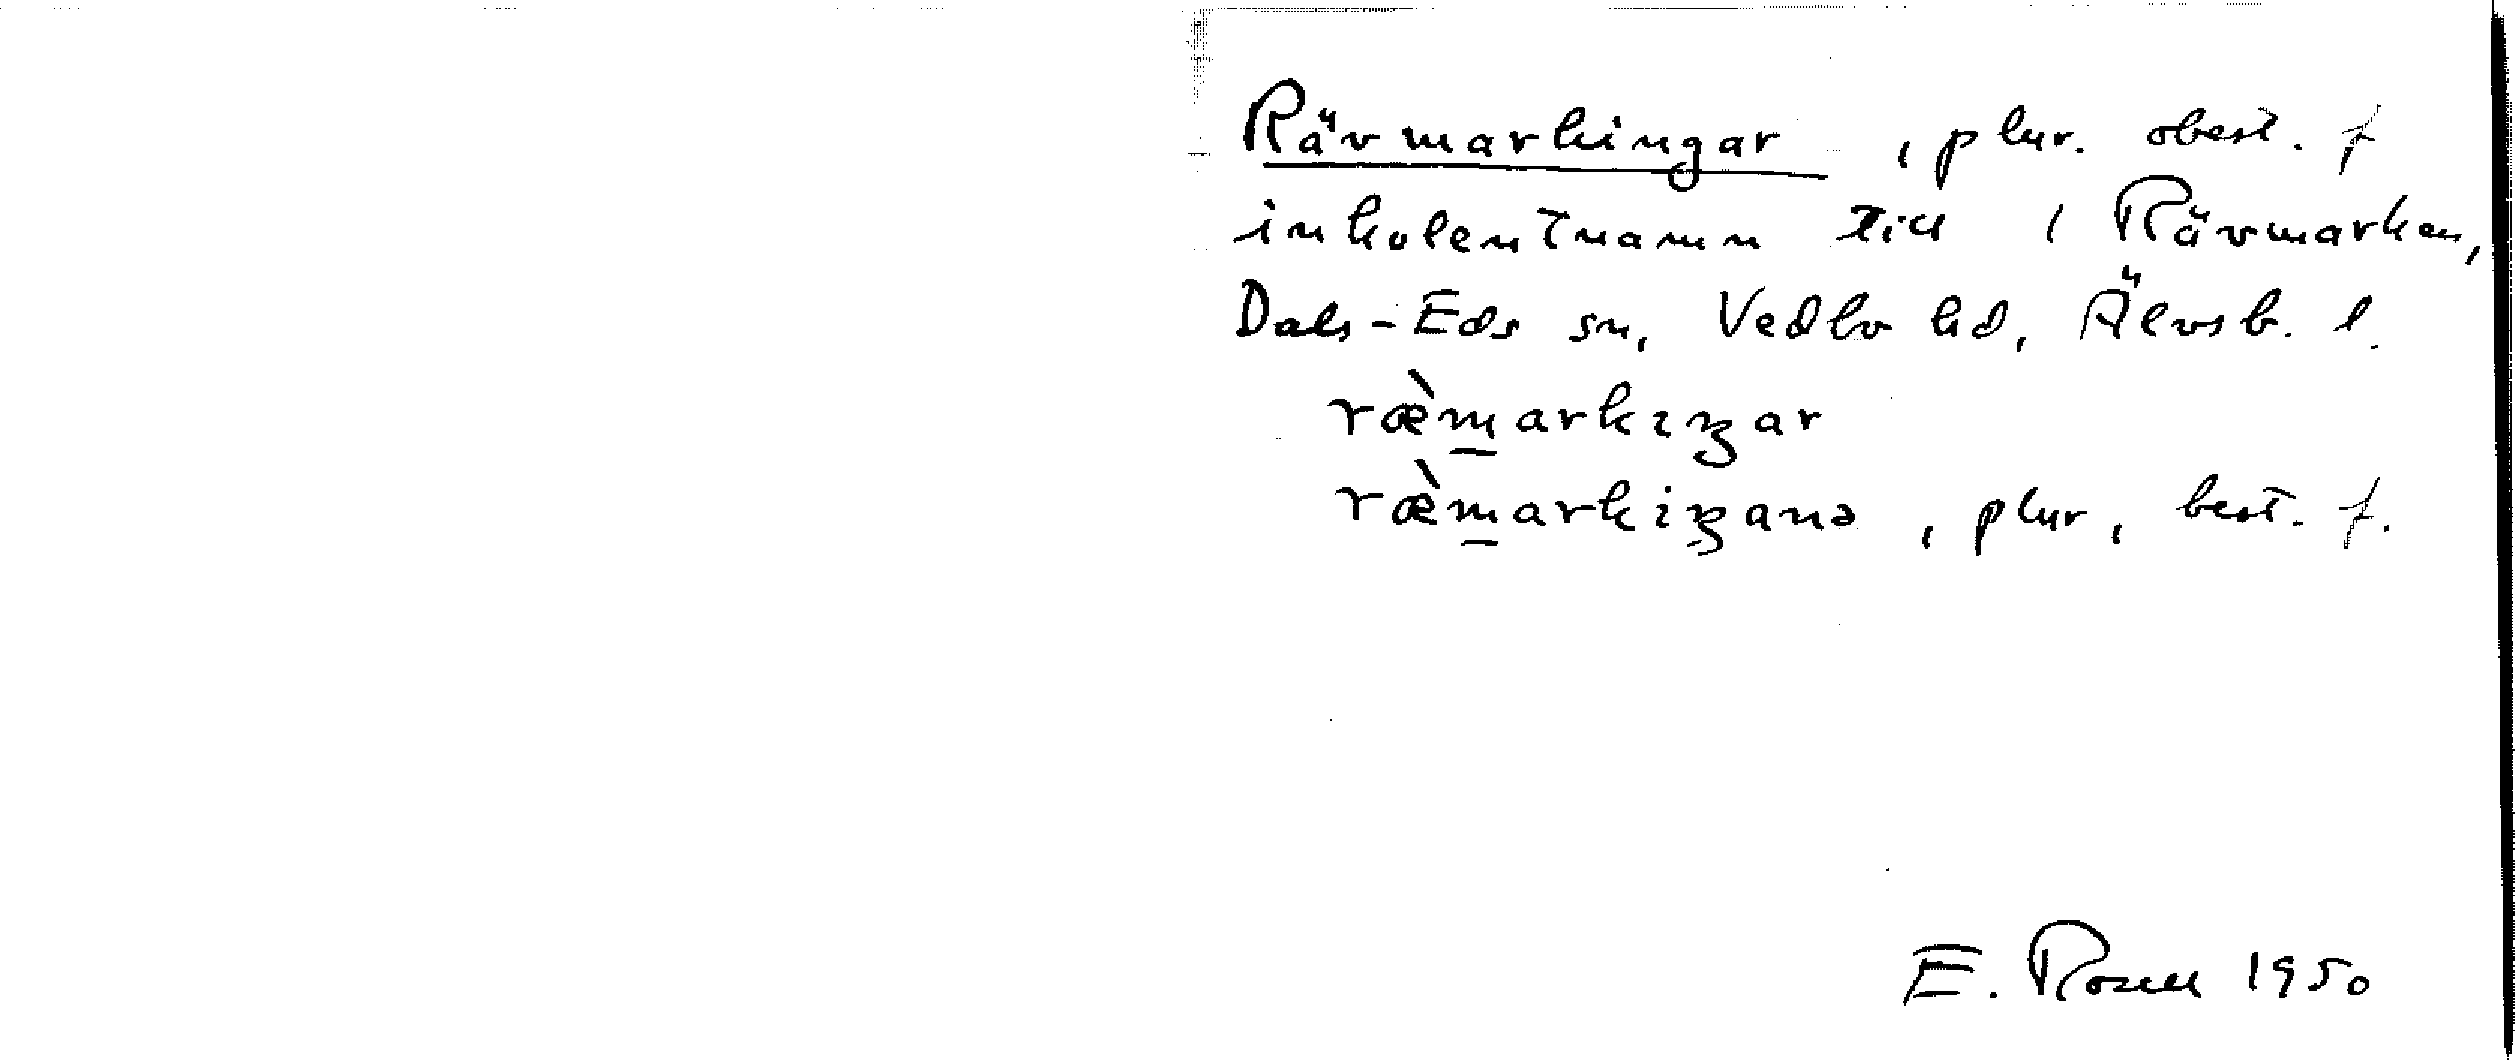 Rävmarkingar, plur. obest. f
inkolentnamn till 1 Rävmarken,
Dals-Eds sn, Vedbo hd, Älvsb. l.
ræ̀m̲arkıŋar
ræ̀m̲arkiŋanə, plur, best. f.
E. Rosell 1950